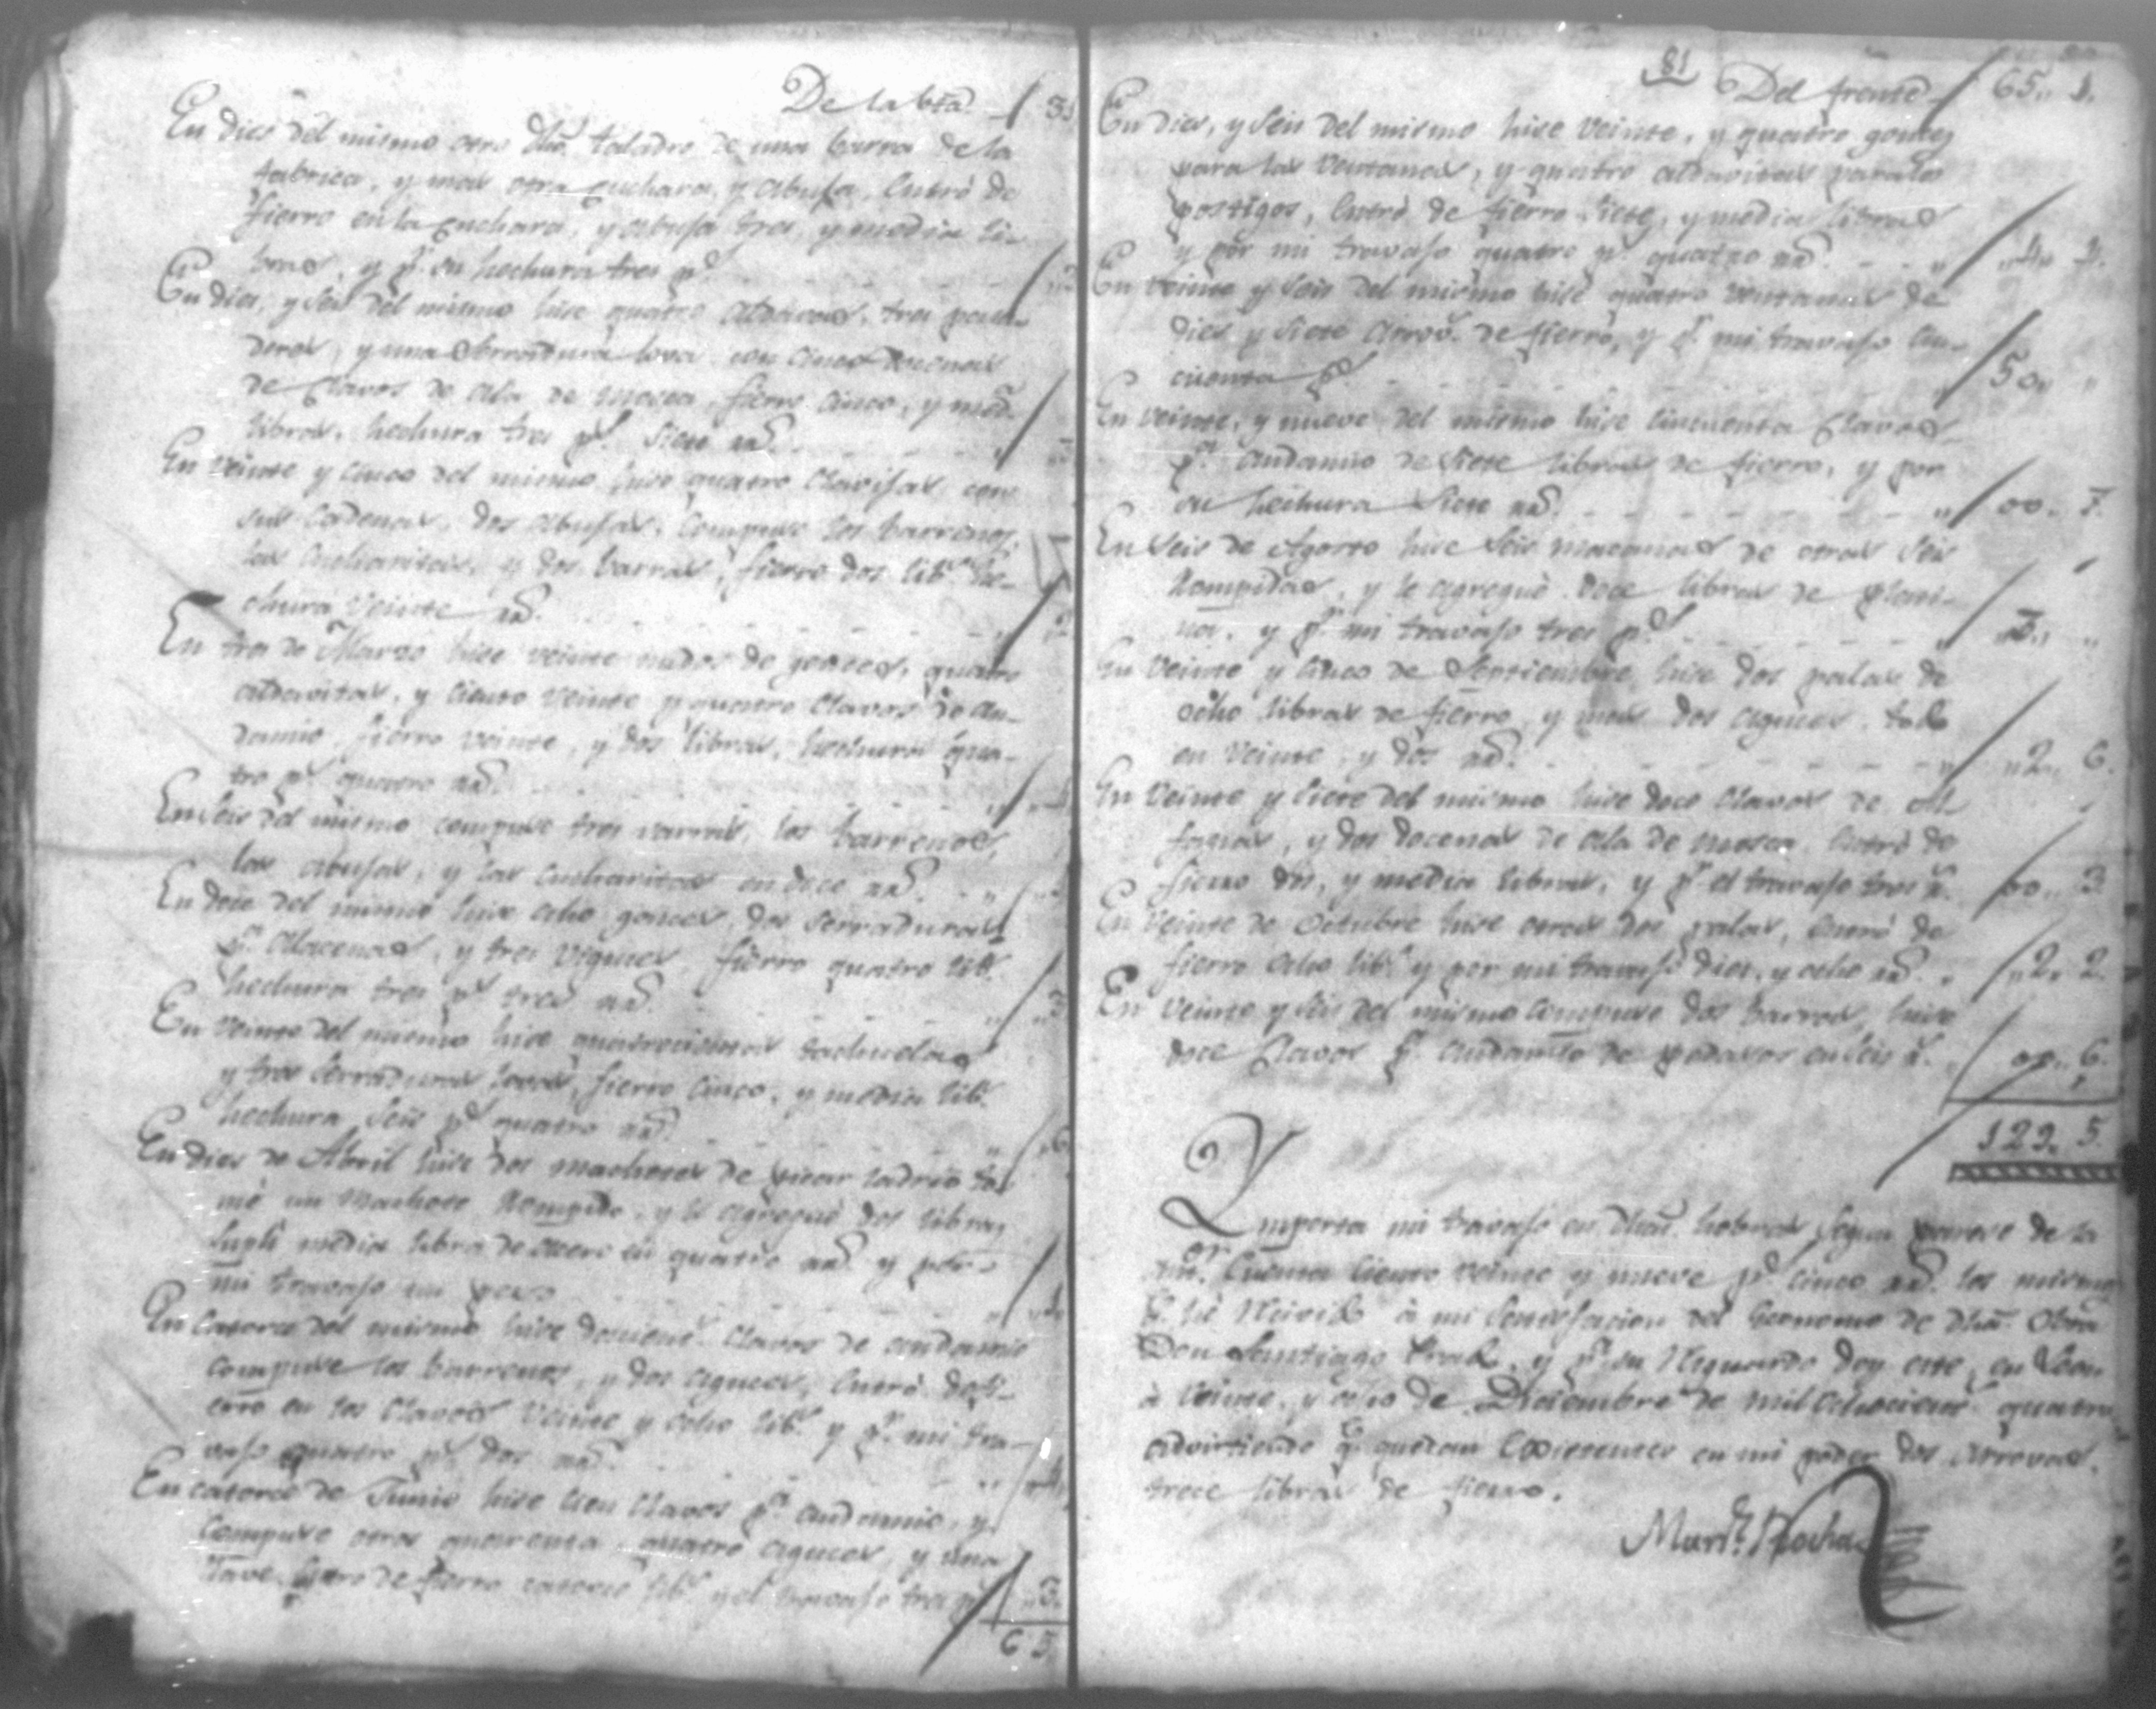 De la bta / 3
En dies del mismo otro dho. taladro de una barra de la
fabrica, y mas otra cuchara, y abuja, entró de
fierro en la cuchara, y abuja tres, y media li-
bras, y pr. su hechura tres ps.
En dies, y seis del mismo hise quatro aldavas, tres pasa-
dores, y una serradura lova con cinco docenas
de clavos de ala de mosca, fierro cinco, y med.
libras, hechura tres ps. siete rrs.
En veinte y cinco del mismo hise quatro clavijas con
sus cadenas, dos abujas, compuse los barrenos,
las cucharitas, y dos barras, fierro dos libs. he-
chura veinte rrs.
En tres de Marzo hise veinte nudos de gonces, quatro
aldavitas, y ciento veinte y quatro clavos de an-
damio, fierro veinte, y dos libras, hechura qua-
tro ps. quatro rrs.
En seis del mismo compuse tres varras, los barrenos,
las abujas, y las cucharitas en doce rrs.
En doce del mismo hise ocho gonces, dos serraduras
pa. alacenas, y tres fierro quatro libs.
hechura tres ps. tres rrs.
En veinte del mismo hise quatrocientas tachuelas
y tres serraduras lovas, fierro cinco, y media libs.
hechura seis ps. quatro rrs. 6
En dies de Abril hise dos machetes de picar ladrio to-
mé un machete rompido, y le agregué dos libras,
suplí media libra de acero en quatro rrs. y por
mi travajo un peso 1
En catorce del mismo hise dosciens. clavos de andamio
compuse los barrenos, y dos agujes, entró de fi-
erro en los clavos veinte y ocho libs. y pr. mi tra-
vajo quatro ps. dos rrs. 4
En catorce de Junio hise cien clavos pa. andamio, y
compuse otros quarenta, quatro agujes, y una
llave, entro de fierro catorce libs. y el travajo tres ps. 3
65
81
Del frente / 65 1.
En dies, y seis del mismo hise veinte, y quatro gonces
para las ventanas, y quatro aldavitas para los
postigos, entró de fierro siete, y media libras
y por mi travajo quatro ps. quatro rrs. 4 4.
En veinte y seis del mismo hise quatro ventanas de
dies y siete arrovs. de fierro, y pr. mi travajo cin-
cuenta ps. 50
En veinte, y nueve del mismo hise cincuenta clavos
pa. andamio de siete libras de fierro, y por
su hechura siete rrs. 00 7.
En seis de Agosto hise seis macanas de otras seis
rompidas, y le agregué doce libras de plati-
na, y pr. mi travajo tres ps. 3
En veinte y cinco de Septiembre hise dos palas de
ocho libras de fierro, y mas dos agujes, todo
en veinte, y dos rrs. 2 6.
En veinte y siete del mismo hise doce clavos de al-
fagias, y dos docenas de ala de mosca, entró de
fierro dos, y media libras, y pr. el travajo tres rs. 00 3
En veinte de Octubre hise otras dos palas, entró de
fierro ocho libs. y por mi travajo dies, y ocho rrs. 2 2.
En veinte y seis del mismo compuse dos barras, hise
doce clavos pa. andamio de pedasos en seis rs. 00 6.
129. 5.
Ymporta mi travajo en dhas. hobras segun parece de la
anr. Cuenta ciento veinte y nueve ps. cinco rrs. los mismos
q. hé recivido à mi sensfacion del Hecnomo de dha. Obra
Don Santiago y pa. su resguardo doy este, en Leon
à veinte, y ocho de Diciembre de mil ochociens. quatro
advirtiendo qe. quedan existentes en mi poder dos arrovas,
trece libras de fierro.
Marn. Rocha